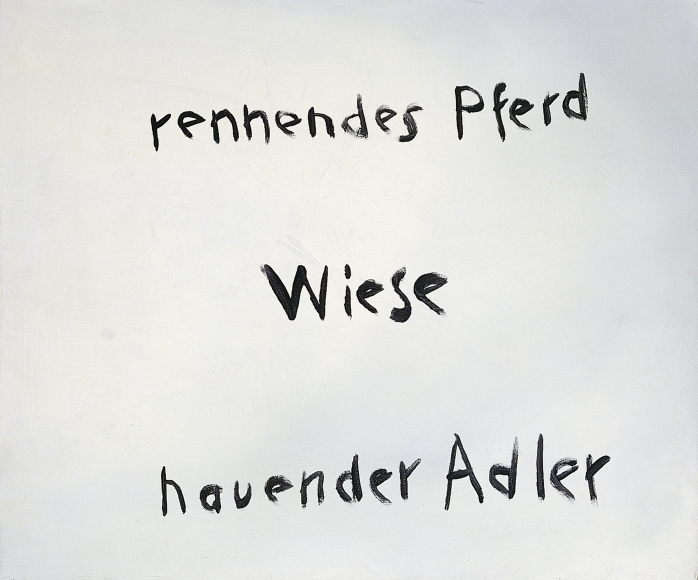 rennendes Pferd
Wiese
hauender Adler